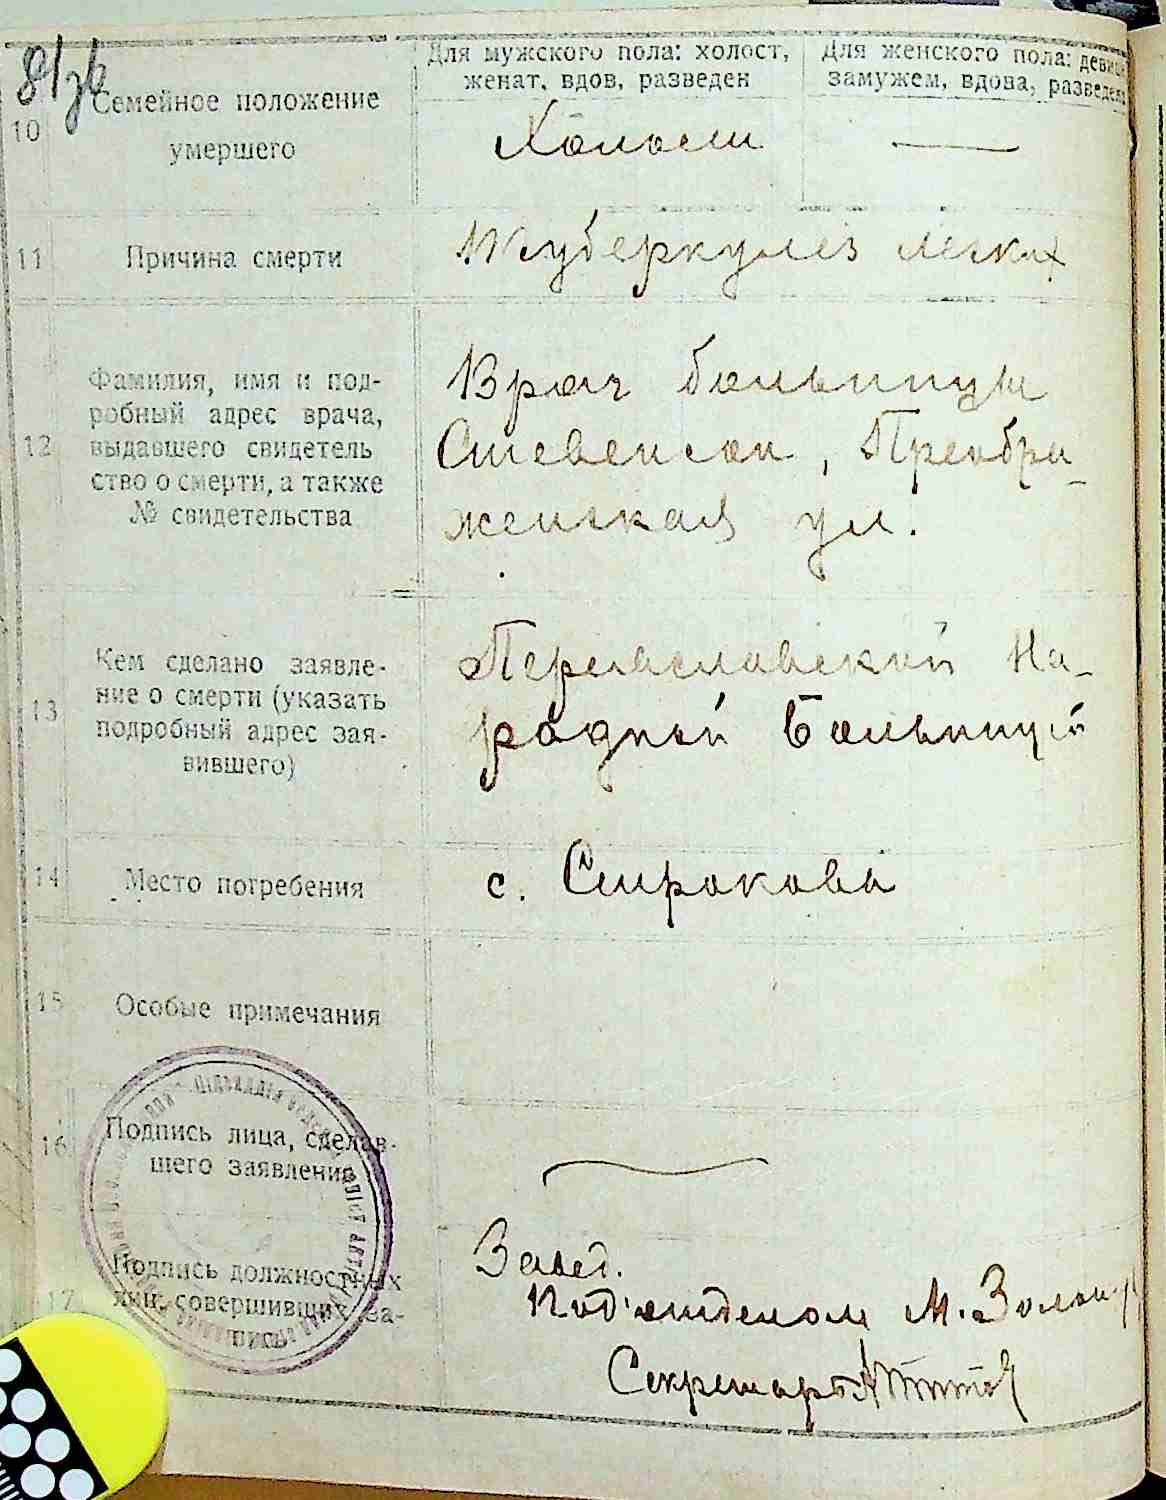 Для мужского пола: холост,
женат, вдов, разведен
Для женского пола: девица
замужем, вдова, разведена
10
Семейное положение
умершего
Холост
—
11
Причина смерти
Туберкулез легких
12
Фамилия, имя и под-
робный адрес врача,
выдавшего свидетель
ство о смерти, а также
№ свидетельства
Врач больницы
Стевенсон, Преобра-
женская ул.
13
Кем сделано заявле-
ние о смерти (указать
подробный адрес зая-
вившего)
Переяславской На-
родной Больницей
14
Место погребения
с.
15
Особые примечания
16
Подпись лица, сделав-
шего заявления
17
Подпись должностных
лиц, совершивших за-
пись
Завед.
Под'отделом М.
Секретарь